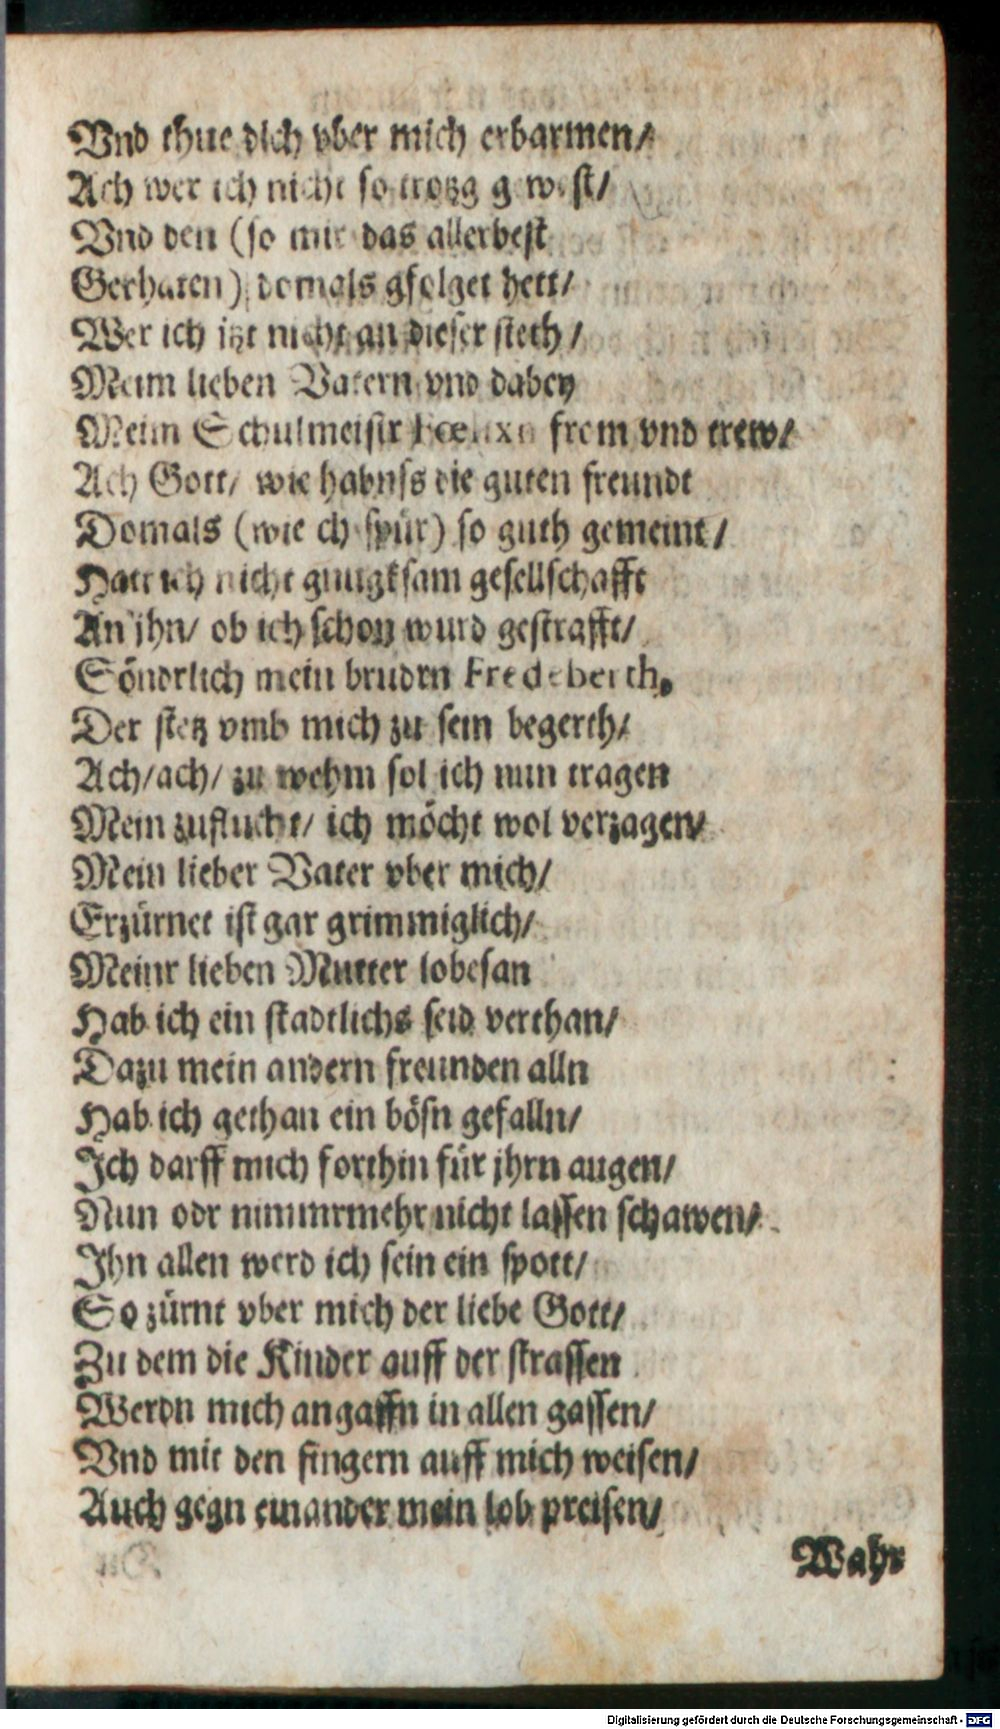 Vnd thue dich vber mich erbarmen/
Ach wer ich nicht so trotzg gewest/
Vnd den (so mir das allerbest
Gerhaten) domals gfolget hett/
Wer ich itzt nicht an dieser steth/
Meim lieben Vatern vnd dabey
Meim Schulmeistr from vnd trew/
Ach Gott/ wie habnß die guten freundt
Domals (wie ich spür) so guth gemeint/
Hatt ich nicht gnugksam gesellschafft
An jhn/ ob ich schon wurd gestrafft/
Söndrlich mein brudrn Fredeberth,
Der stetz vmb mich zu sein begerth/
Ach/ach/ zu wehm sol ich nun tragen
Mein zuflucht/ ich möcht wol verzagen/
Mein lieber Vater vber mich/
Erzürnet ist gar grimmiglich/
Meinr lieben Mutter lobesan
Hab ich ein stadtlichs leid verthan/
Dazu mein andern freunden alln
Hab ich gethan ein bösn gefalln/
Ich darff mich forthin für jhrn augen/
Nun odr nimmrmehr nicht lassen schawen/
Ihn allen werd ich sein ein spott/
So zürnt vber mich der liebe Gott/
Zu dem die Kinder auff der strassen
Werdn mich angaffn in allen gassen/
Vnd mit den fingern auff mich weisen/
Auch gegn einander mein lob preisen/
Wahr
Digitalisierung gefördert durch die Deutsche Forschungsgemeinschaft - DFG